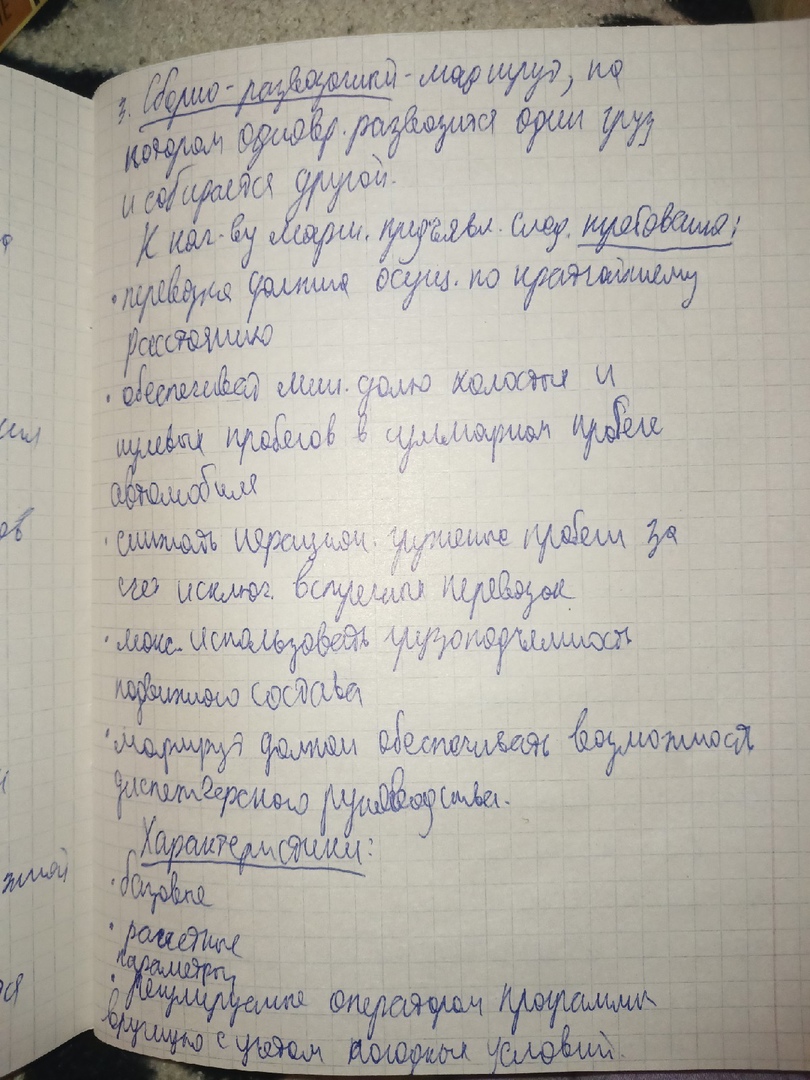 3. Сборно-развозочный - маршрут, по
котором одновр. развозится один груз
и собирается другой.
К кач-ву марш. предъявл. след. требования:
• перевозка должна осущ. по кратчайшему
расстоянию
• обеспечивает мин. долю холостых и
нулевых пробегов в суммарном пробеге
автомобиля
• снижать нерацион. груженые пробеги за
счет исключ. встречных перевозок
• макс. использовать грузоподъемность
подвижного состава
• маршрут должен обеспечивать возможность
диспетчерского руководства.
Характеристики:
• базовые
• расчетные
параметры
• Регулируемые оператором программы
вручную с учетом погодных условий.